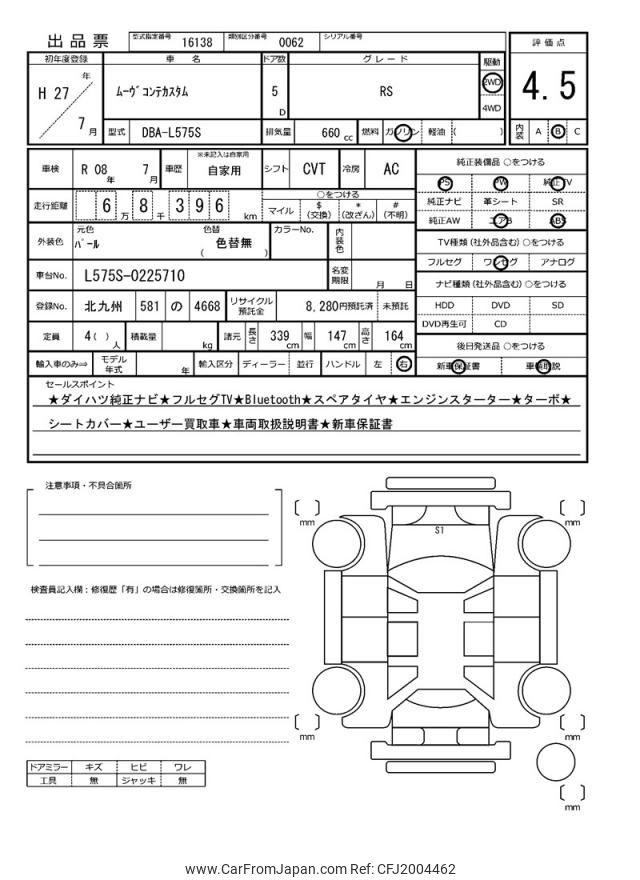 出品票
型式指定番号 16138 類別区分番号 0062 シリアル番号
評価点
4.5
内装 A B C
初年度登録 車名 ドア数 グレード 駆動
H 27 年 7 月
ムーヴコンテカスタム 5 D RS 2WD 4WD
型式 DBA-L575S 排気量 660 cc 燃料 ガソリン 軽油 ( )
車検 R 08 年 7 月 車歴 ※未記入は自家用 自家用 シフト CVT 冷房 AC
走行距離 6 万 8 千 3 9 6 km
○をつける
マイル $ (交換) * (改ざん) # (不明)
外装色 元色 パール 色替 色替無 ( ) カラーNo. 内装色
車台No. L575S-0225710 名変期限 月 日
登録No. 北九州 581 の 4668 リサイクル預託金 8,280円預託済 未預託
定員 4( )人 積載量 kg 諸元 長さ 339 cm 幅 147 cm 高さ 164 cm
輸入車のみ⇒ モデル年式 年 輸入区分 ディーラー 並行 ハンドル 左 右
純正装備品 ○をつける
PS PW 純正TV
純正ナビ 革シート SR
純正AW エアB ABS
TV種類(社外品含む) ○をつける
フルセグ ワンセグ アナログ
ナビ種類(社外品含む) ○をつける
HDD DVD SD
DVD再生可 CD
後日発送品 ○をつける
新車保証書 車輌取説
セールスポイント
★ダイハツ純正ナビ★フルセグTV★Bluetooth★スペアタイヤ★エンジンスターター★ターボ★
シートカバー★ユーザー買取車★車両取扱説明書★新車保証書
注意事項・不具合箇所
検査員記入欄：修復歴「有」の場合は修復箇所・交換箇所を記入
ドアミラー キズ ヒビ ワレ
工具 無 ジャッキ 無
[ ] mm
[ ] mm
S1
[ ] mm
[ ] mm
[ ] mm
www.CarFromJapan.com Ref: CFJ2004462